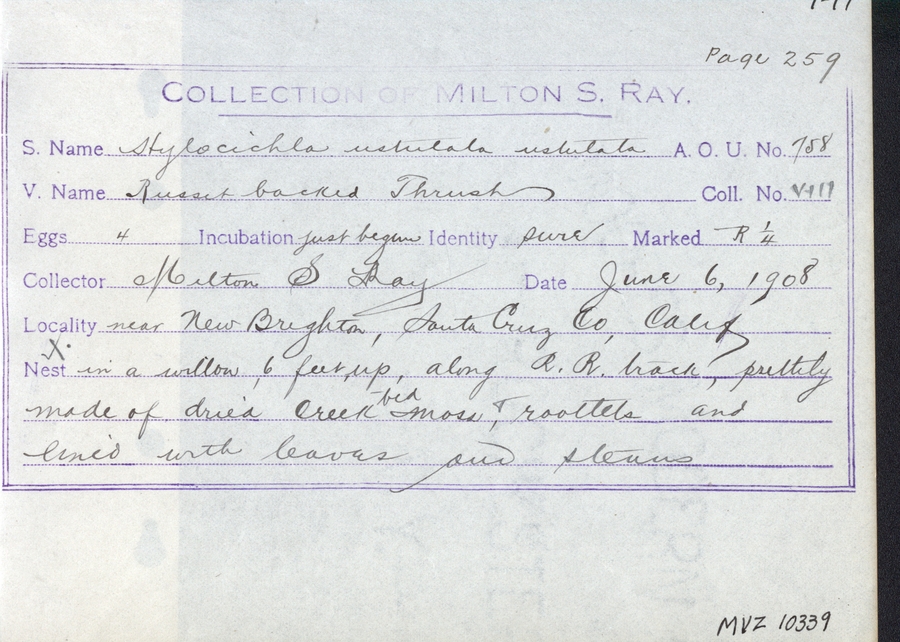 Page 259
COLLECTION OF MILTON S. RAY.
S. Name Hylocichla ustulata ustulata A. O. U. No. 758
V. Name Russet backed Thrush Coll. No.
Eggs 4 Incubation just begun Identity sure Marked R 1/4
Collector Milton S Ray Date June 6, 1908
Locality near New Brighton, Santa Cruz Co, Calif
X.
Nest in a willow, 6 feet up, along R. R. track, prettily
made of dried creek bed moss, & roottels and
lined with leaves and stems
MVZ 10339